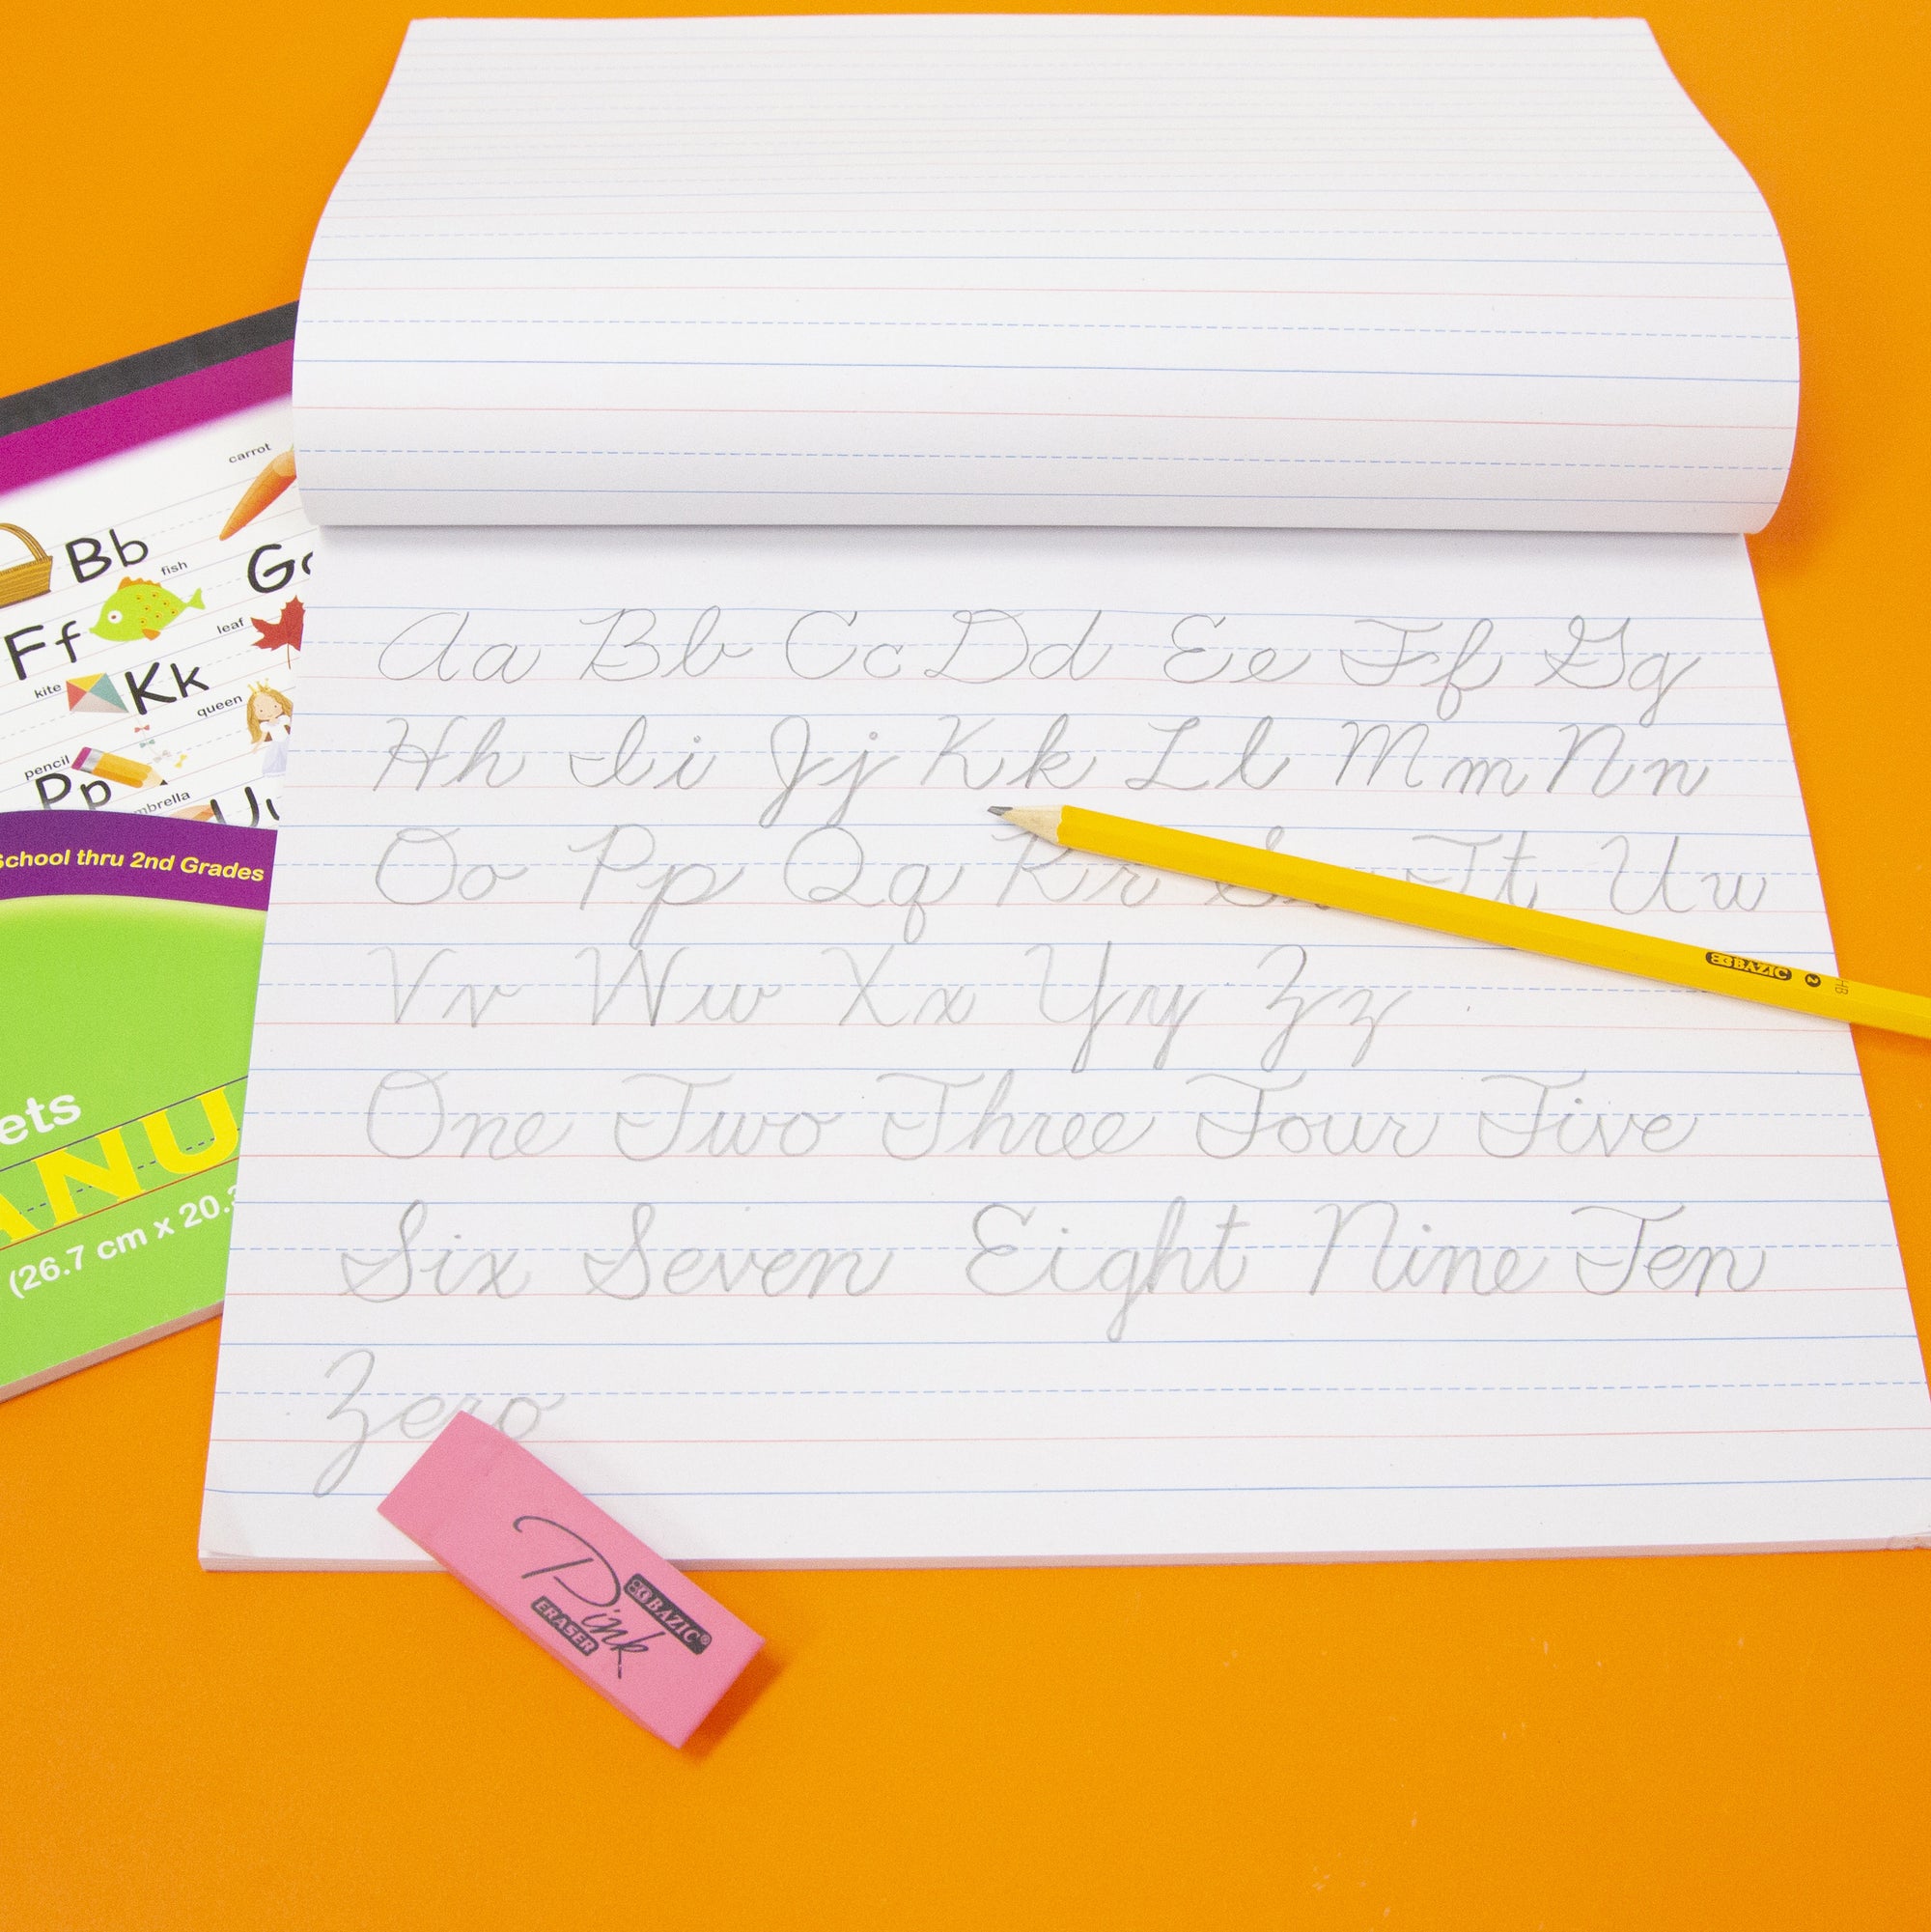 carrot
Bb
fish
Ff
leaf
kite
Kk
queen
pencil
Pp
School thru 2nd Grades
(26.7 cm x 20.3
Aa Bb Cc Dd Ee Ff Gg
Hh Ii Jj Kk Ll Mm Nn
Oo Pp Qq Rr Tt Uu
Vv Ww Xx Yy Zz
One Two Three Four Five
Six Seven Eight Nine Ten
Zero
BAZIC 2 HB
BAZIC®
Pink
ERASER